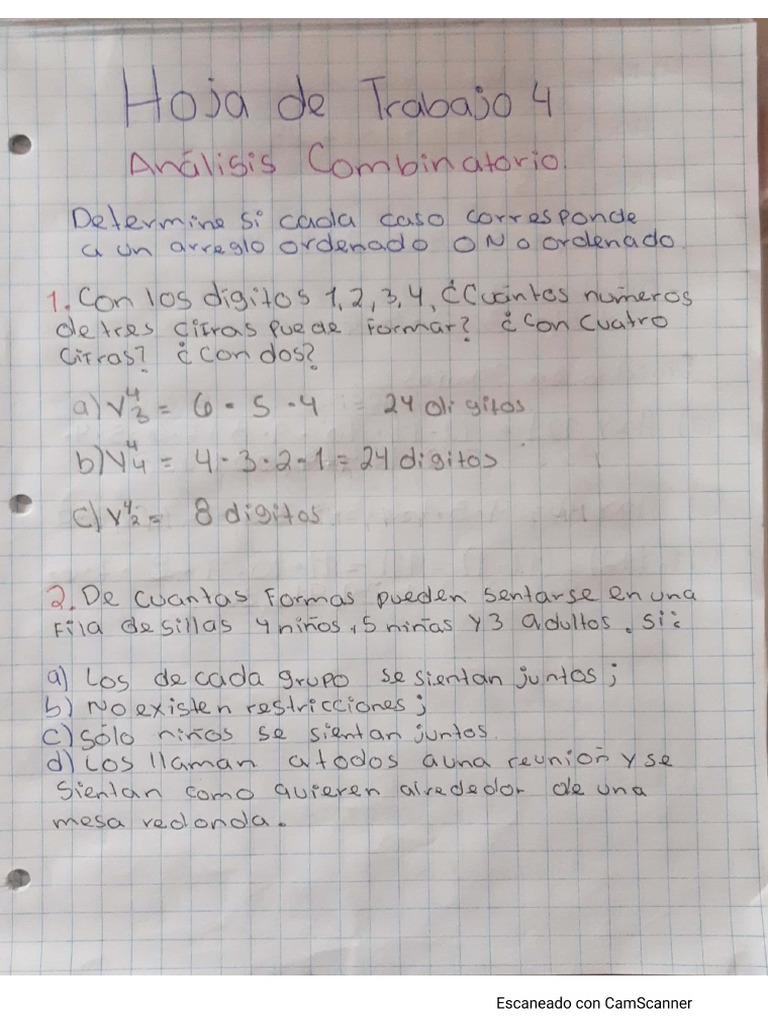 Hoja de Trabajo 4
Análisis Combinatorio.
Determine si cada caso corresponde
a un arreglo ordenado o No ordenado
1. Con los digitos 1, 2, 3, 4, ¿Cuántos números
de tres cifras puede formar? ¿Con cuatro
cifras? ¿Con dos?
a) V⁴₃ = 6 · 5 · 4 = 24 digitos
b) V⁴₄ = 4 · 3 · 2 · 1 = 24 digitos
c) V⁴₂ = 8 digitos
2. De cuantas formas pueden sentarse en una
fila de sillas 4 niños, 5 niñas y 3 adultos. Si:
a) Los de cada grupo se sientan juntos;
b) No existen restricciones;
c) Sólo niños se sientan juntos.
d) Los llaman a todos a una reunión y se
sientan como quieren alrededor de una
mesa redonda.
Escaneado con CamScanner